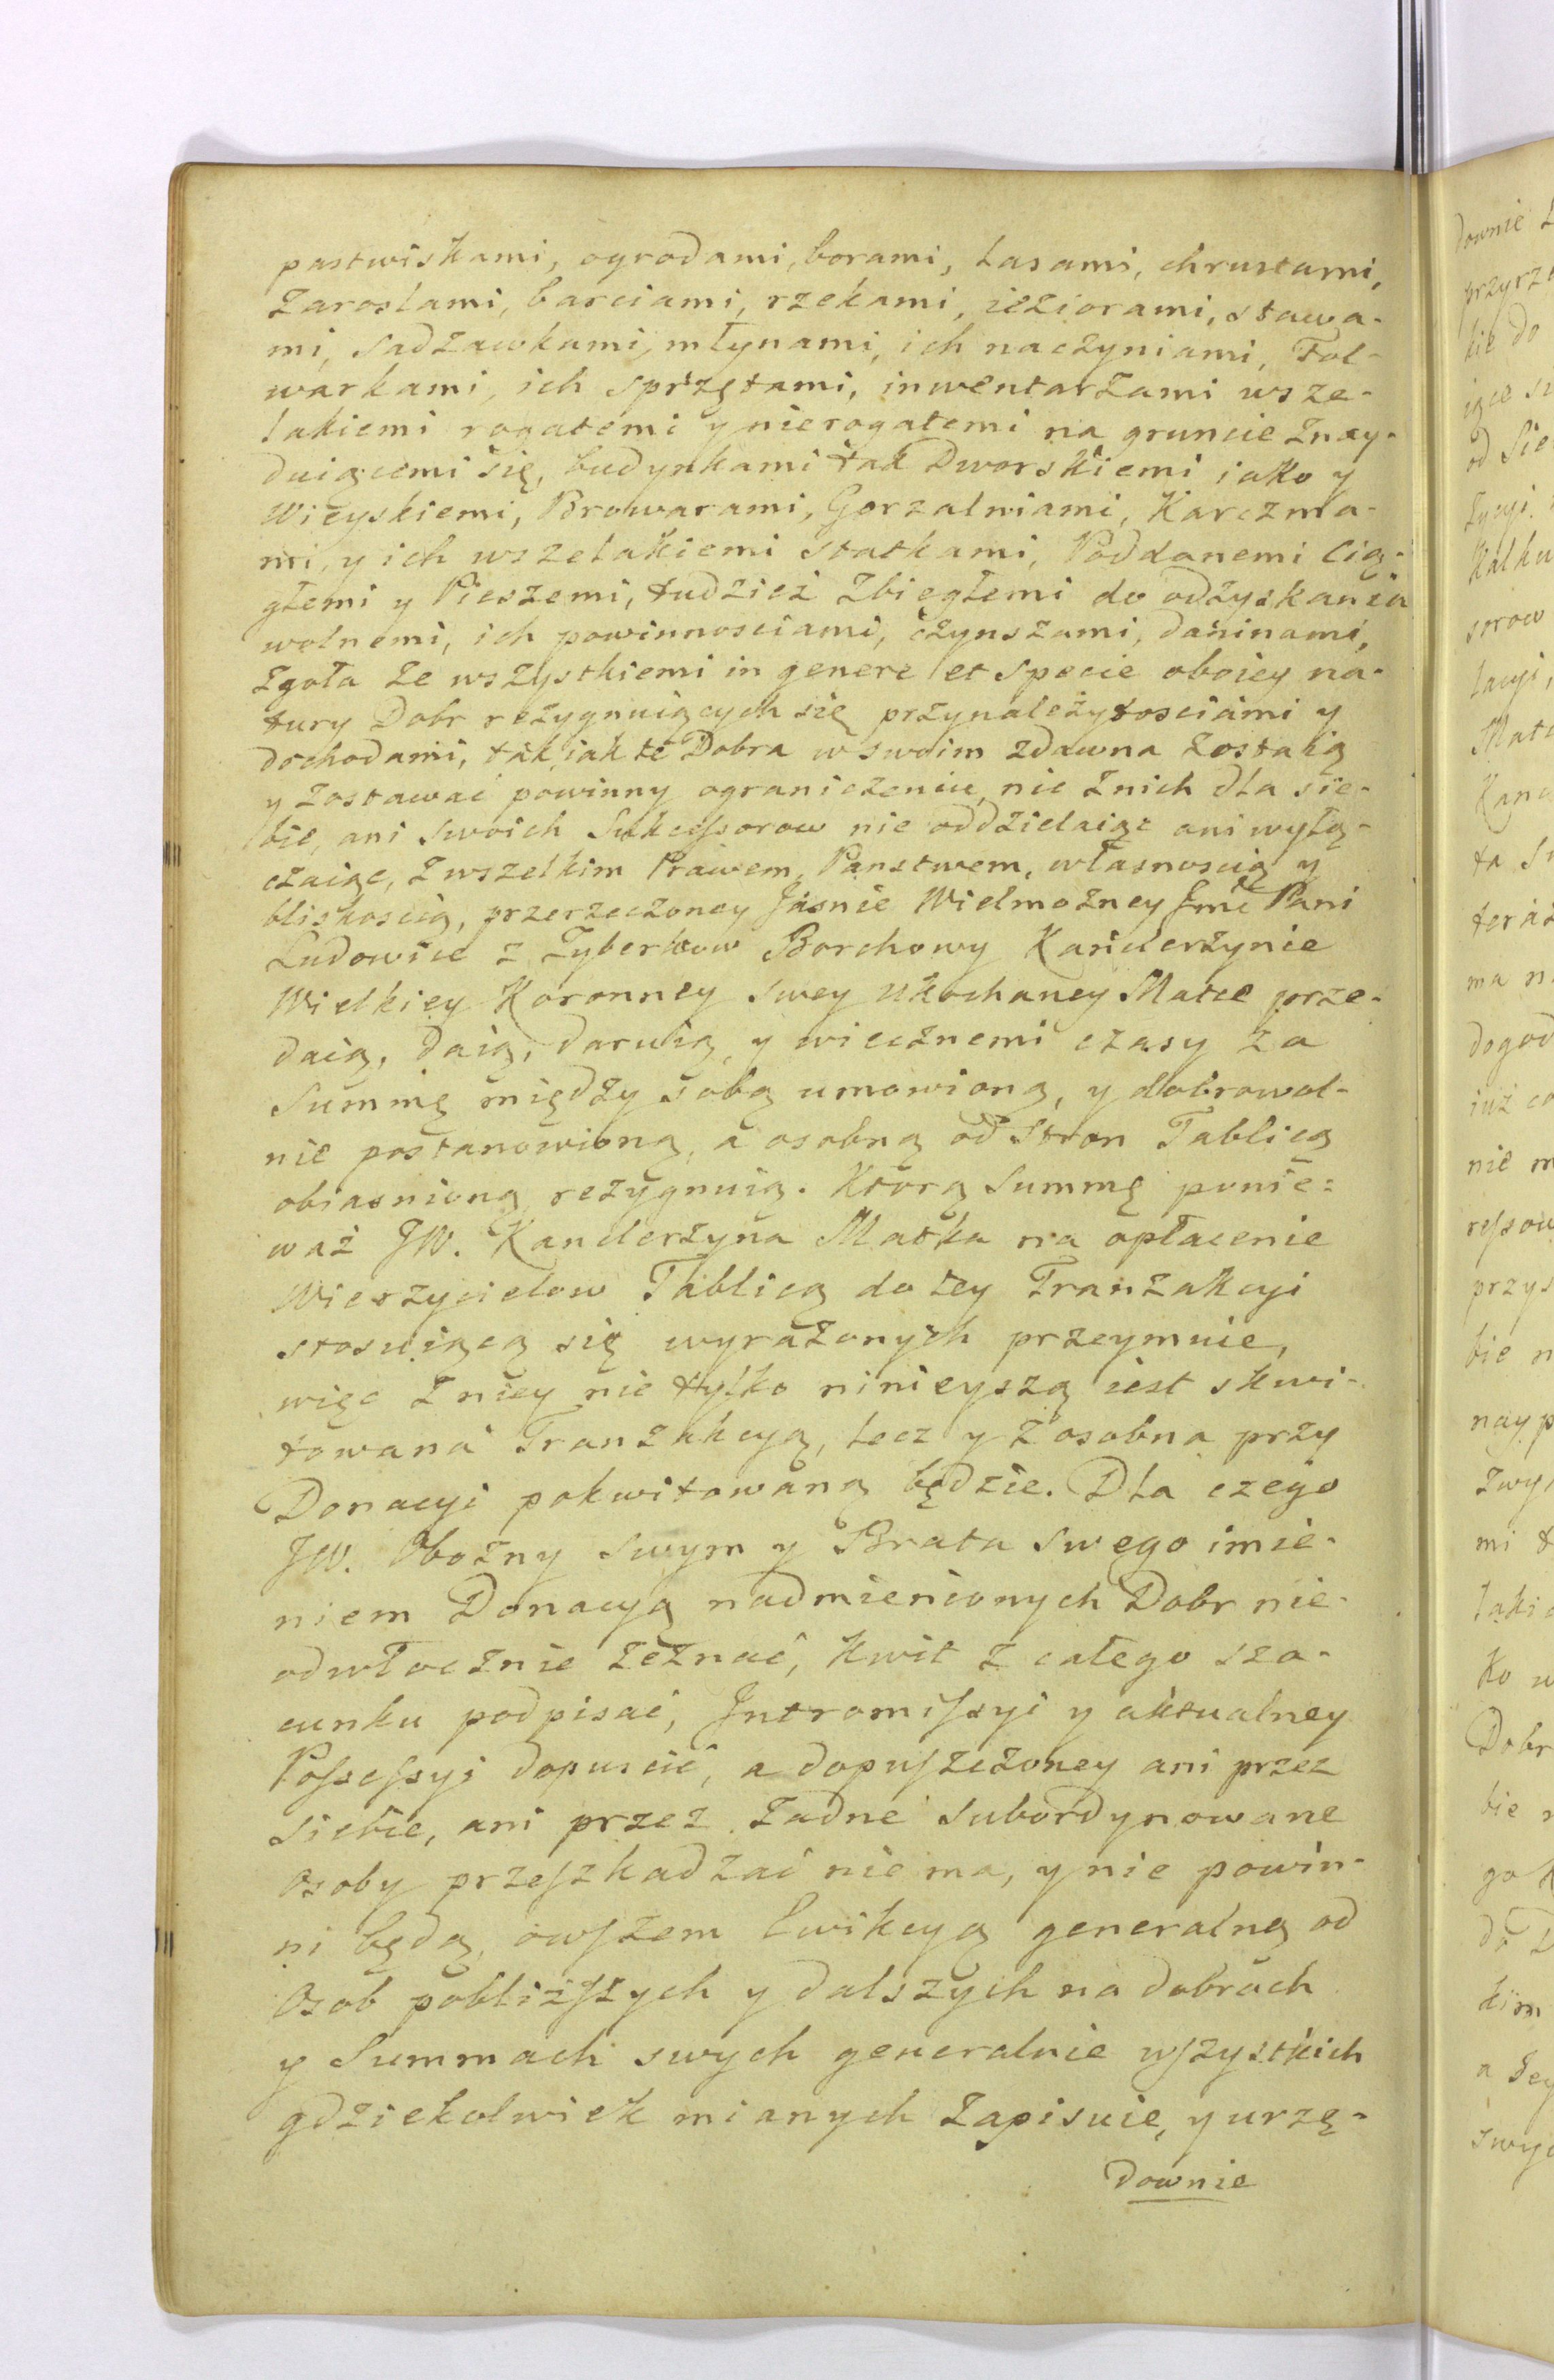 pastwiskami, ogrodami, borami, lasami, chrustami,
zaroslami, barciami, rzekami, ieziorami, stawa-
mi, sadzawkami, młynami, ich naczyniami, Fol-
warkami, ich sprzętami, inwentarzami wsze-
lakiemi rogatemi y nierogatemi na gruncie znay-
duiącemi się, budynkami tak Dworskiemi iako y
Wieyskiemi, Browarami, Gorzalniami, Karczma-
mi, y ich wszelakiemi statkami, Poddanemi Cią-
głemi y Pieszemi, tudzież zbiegłemi do odzyskania
wolnemi, ich powinnosciami, czynszami, daninami,
zgoła ze wszystkiemi in genere et specie oboiey na-
tury Dobr rezygnuiących się przynależytosciami y
dochodami, tak iak te Dobra w swoim zdawna zostaią
y zostawać powinny ograniczeniu, nic z nich dla sie-
bie, ani swoich Sukcessorow nie oddzielaiąc ani wyłą-
czaiąc, z wszelkim Prawem, Panstwem, własnoscią y
bliskoscią, przerzeczoney Jasnie Wielmożney Jmć Pani
Ludowice z Zyberkow Borchowy Kanclerzynie
Wielkiey Koronney swey ukochaney Matce prze-
daią, daią, daruią, y wiecznemi czasy za
Summę między sobą umowioną, y dobrowol-
nie postanowioną, a osobną od Stron Tablicą
obiasnioną rezygnuią. Ktorą Summę ponie-
waż JW. Kanclerzyna Matka na opłacenie
Wierzycielow Tablicą do tey Tranzakcyi
stosuiącą się wyrażonych przeymuie,
więc z niey nie tylko ninieyszą iest skwi-
towana Tranzakcyą, lecz y z osobna przy
Donacyi pokwitowaną będzie. Dla czego
JW. Obożny swym y Brata swego imie-
niem Donacyą nadmienionych Dobr nie-
odwłocznie zeznać, kwit z całego sza-
cunku podpisać, Intromissyi y aktualney
Possessyi dopuscić, a dopuszczoney ani przez
siebie, ani przez żadne subordynowane
osoby przeszkadzać nie ma, y nie powin-
ni będą, owszem Ewikcyą generalną od
osob pobliższych y dalszych na dobrach
y Summach swych generalnie wszystkich
gdziekolwiek mianych zapisuie, y urzę-
downie